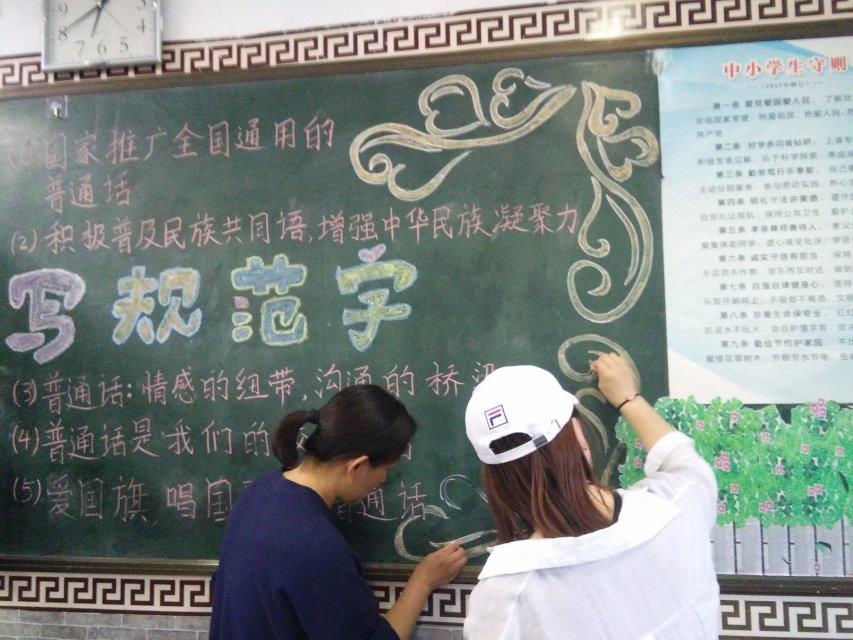 (1)国家推广全国通用的
普通话
(2)积极普及民族共同语,增强中华民族凝聚力
写规范字
(3)普通话:情感的纽带,沟通的桥梁
(4)普通话是我们的
(5)爱国旗 唱国 普通话
中小学生守则
第一条 爱党爱国爱人民。了解党
史国情珍视国家荣誉,热爱祖国,热爱人民,热爱
共产党。
第二条 好学多问肯钻研。上课专
积极发表见解,乐于科学探索,养成阅
第三条 勤劳笃行乐奉献。自己事
主动分担家务,参与劳动实践,热心志
第四条 明礼守法讲美德。遵守
自觉礼让排队,保持公共卫生,爱护
第五条 孝亲尊师善待人。孝父
爱集体助同学,虚心接受批评,学会
第六条 诚实守信有担当。保持
不说谎不作弊,借东西及时还,做到
第七条 自强自律健身心。
乐观开朗向上,不吸烟不喝酒,文明
第八条 珍爱生命保安全。红灯
防溺水不玩火,会自护懂求救,坚决
第九条 勤俭节约护家园。不比
爱惜花草树木,节粮节水节电,低碳
FILA
8 7 6 5 4